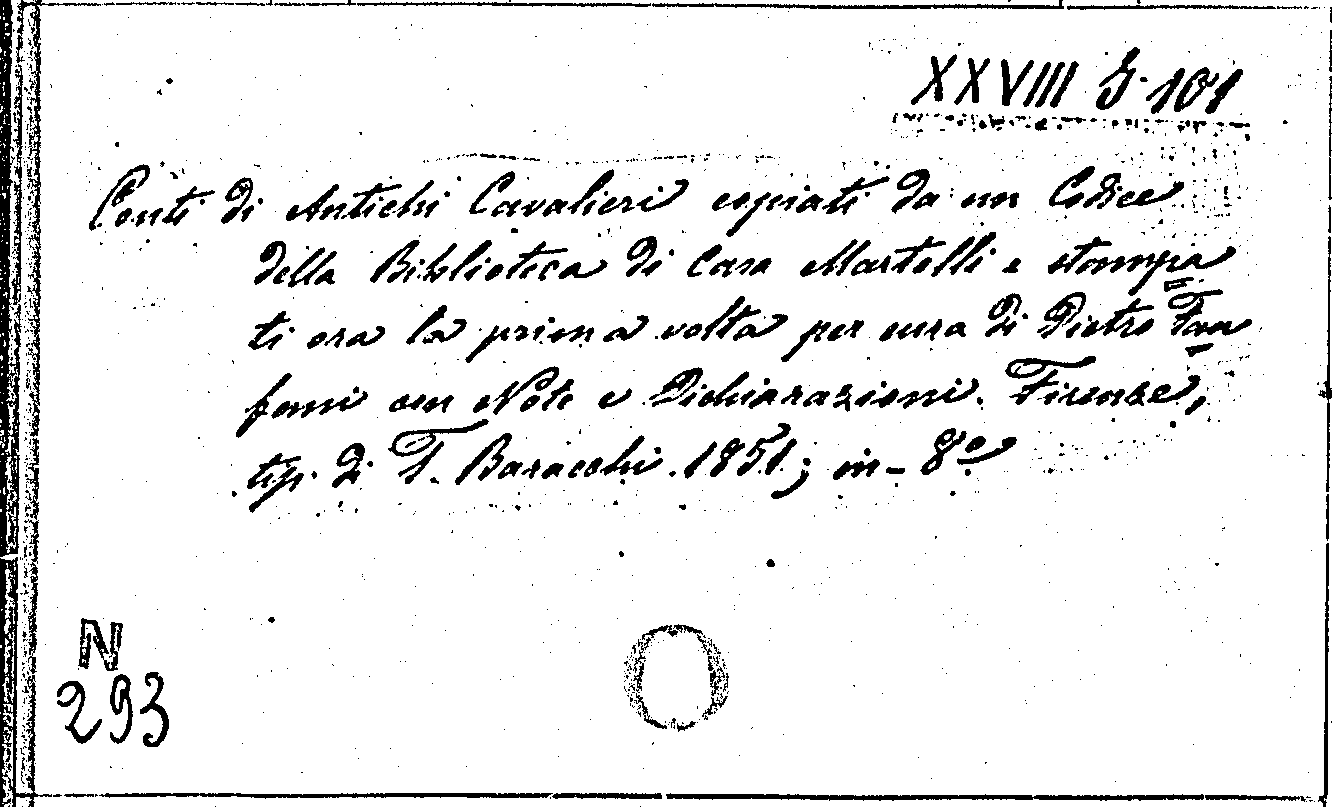 XXVIII 5-101
Conti di Antichi Cavalieri copiati da un Codice
della Biblioteca di Casa Martelli e stampa
ti ora la prima volta per cura di Pietro Fan
fani con Note e Dichiarazioni. Firenze,
tip. di T. Baracchi. 1851; in-8°
N
293